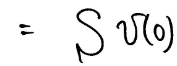 = S V(0)